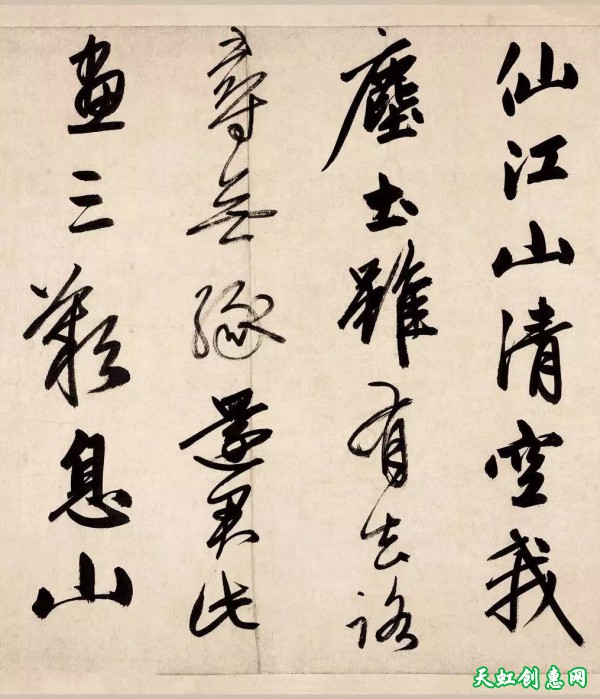 仙江山清空我
塵土雖有去路
尋無緣還君此
畫三歎息山
天虹创惠网